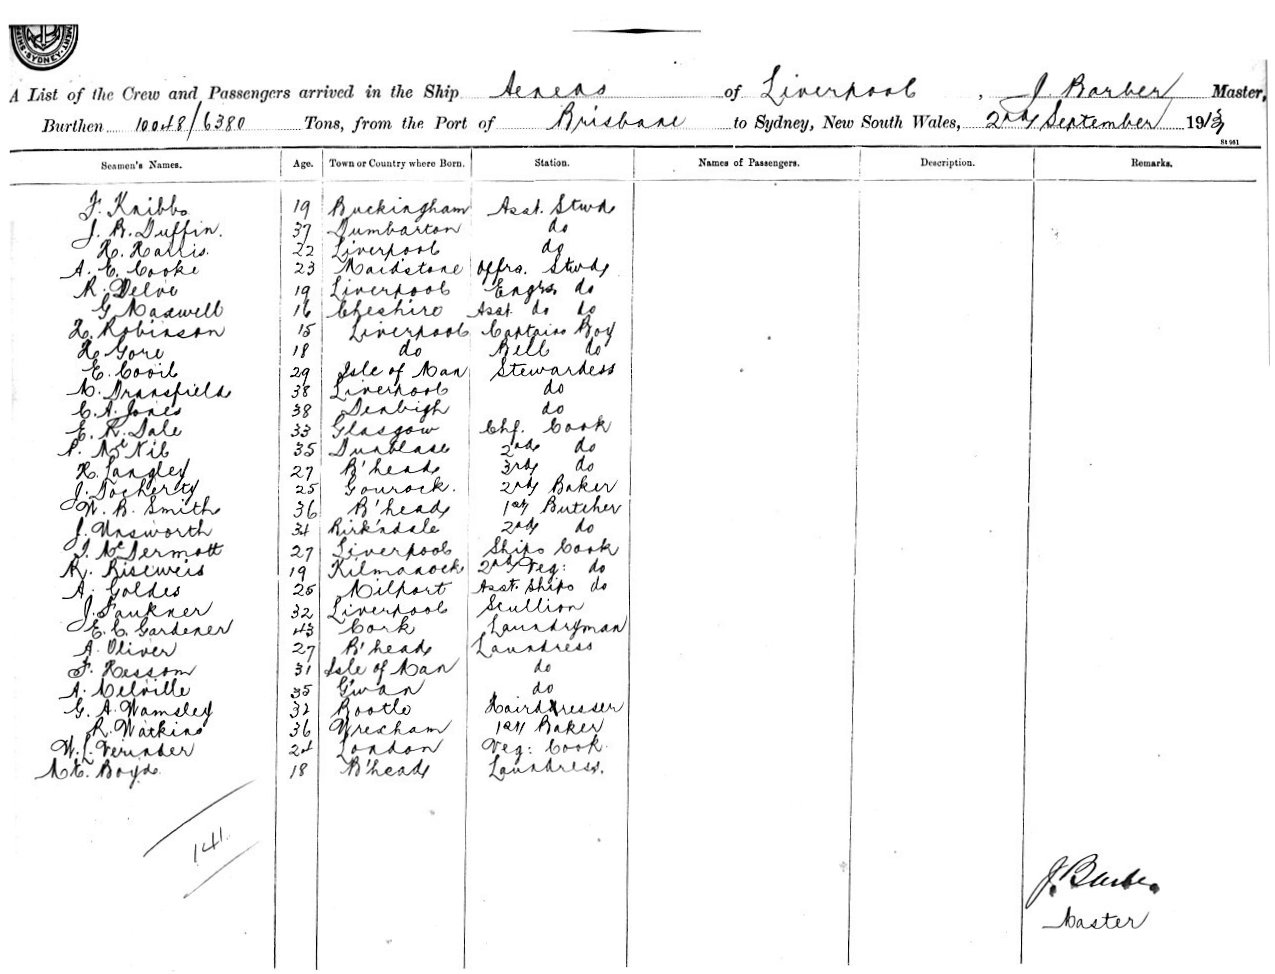 SHIPPING SYDNEY
A List of the Crew and Passengers arrived in the Ship Aeneas of Liverpool, J Barber Master,
Burthen 10048/6380 Tons, from the Port of Brisbane to Sydney, New South Wales, 2nd September 1913
St 961
Seamen's Names. Age. Town or Country where Born. Station. Names of Passengers. Description. Remarks.
F. Knibbs 19 Buckingham Asst. Stwd
J. B. Duffin. 37 Dumbarton do
H. Harris. 22 Liverpool do
A. E. Cooke 23 Maidstone Offrs. Stwd
R. Delve 19 Liverpool Engrs. do
G Maxwell 16 Cheshire Asst do do
H. Robinson 15 Liverpool Captains Boy
H. Gore 18 do Bell do
E. Cooil 29 Isle of Man Stewardess
M. Dransfield 38 Liverpool do
C. A. Jones 38 Denbigh do
E. R. Dale 33 Glasgow Chf. Cook
P. McNib 35 Dunblase 2nd do
H. Langley 27 B'head 3rd do
J. Docherty 25 Gourock. 2nd Baker
W. B. Smith 36 B'head 1st Butcher
J. Unsworth 34 Kirkdale 2nd do
J. McDermott 27 Liverpool Ships Cook
R. 19 Kilmanock 2nd Veg: do
A. Goldes 25 Milport Asst. Ships do
J. Faukner 32 Liverpool Scullion
E. C. Gardener 43 Cork Laundryman
A. Oliver 27 B'head Laundress
F. Kessom 31 Isle of Man do
A. Melville 35 Gwan do
G. A. Wamsley 32 Bootle Hairdresser
R. Watkins 36 Wrexham 1st Baker
W. L. Verinder 24 London Veg: Cook
M. E. Boyd 18 B'head Laundress.
141.
J. Barber
Master